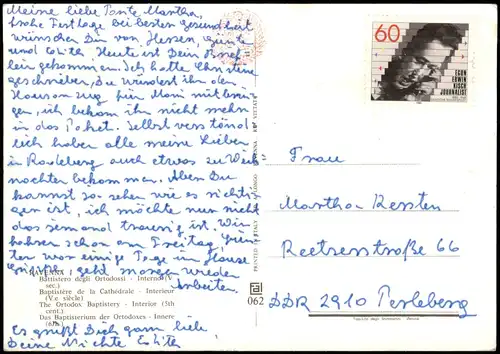 Meine liebe Tante Martha,
frohe Festtage bei bester Gesundheit
wünschen Dir von Herzen Günter
und Edith. Heute ist Dein Brief-
lein gekommen. Ich hatte Christine
geschrieben, Du würdest ihr den
Hausanzug für Mani mitbringen
, ich bekam ihn nicht mehr
in das Paket. Selbstverständ
lich haben alle meine Lieben
in Perleberg auch etwas zu Weih
nachten bekommen. Aber Du
kannst so sehen wie es richtig
ist, ich möchte nur nicht
das jemand traurig ist. Wir
fahren schon am Freitag, Gün
ter war einige Tage im Hause
Grüße, geht morgen wieder
arbeiten.
Es grüßt Dich ganz liebe
Deine Nichte Edith
RAVENNA
Battistero degli Ortodossi - Interno (V
sec.)
Baptistère de la Cathédrale - Intérieur
(V.e siècle)
The Ortodox Baptistery - Interior (5th
cent.)
Das Baptisterium der Ortodoxes - Innere
PRINTED IN ITALY
062
60
EGON
ERWIN
KISCH
JOURNALIST
Frau
Martha Kersten
Reetzerstraße 66
DDR 2910 Perleberg